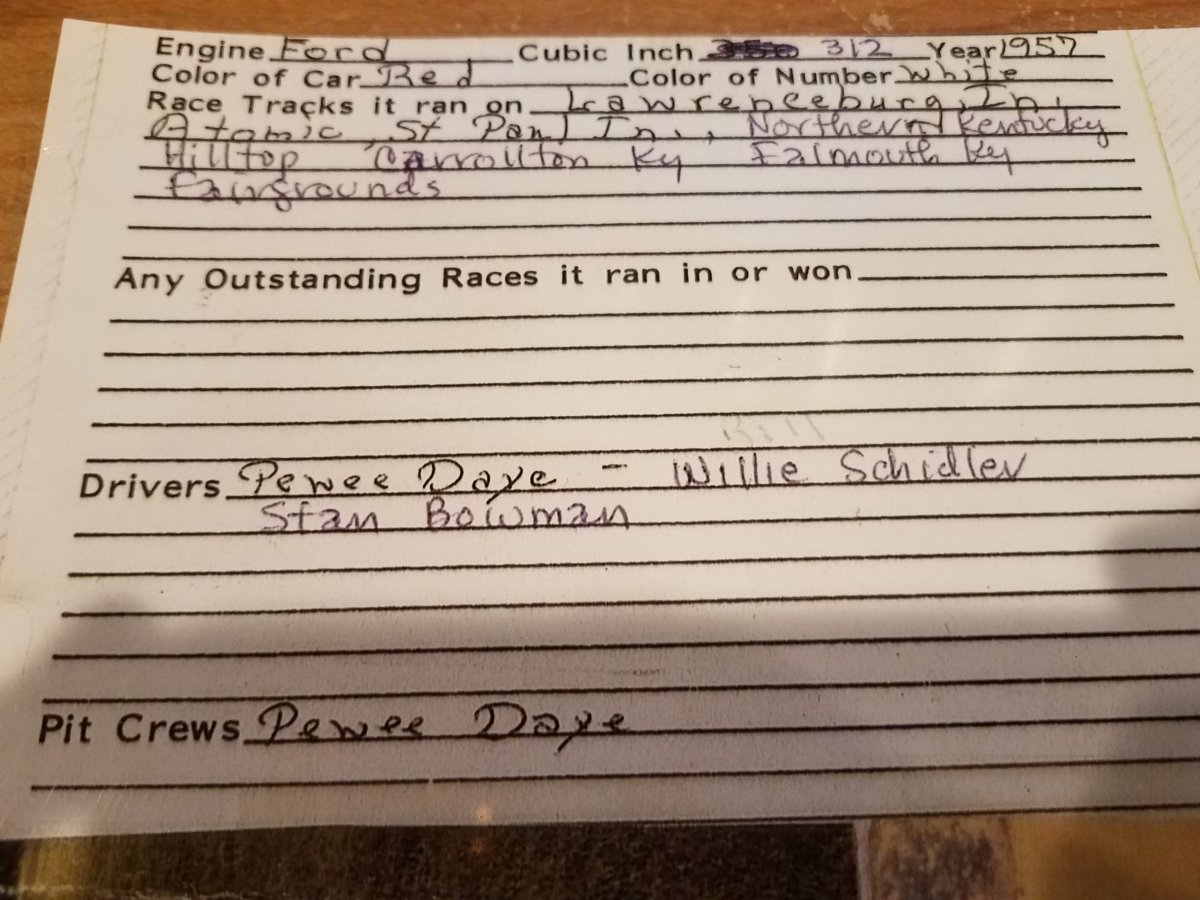 Engine Ford Cubic Inch 312 Year 1957
Color of Car Red Color of Number White
Race Tracks it ran on Lawrenceburg, In,
Atomic St Paul In., Northern Kentucky
Hilltop Carrollton Ky Falmouth Ky
Fairgrounds
Any Outstanding Races it ran in or won
Drivers Pewee Daye - Willie Schidler
Stan Bowman
Pit Crews Pewee Daye